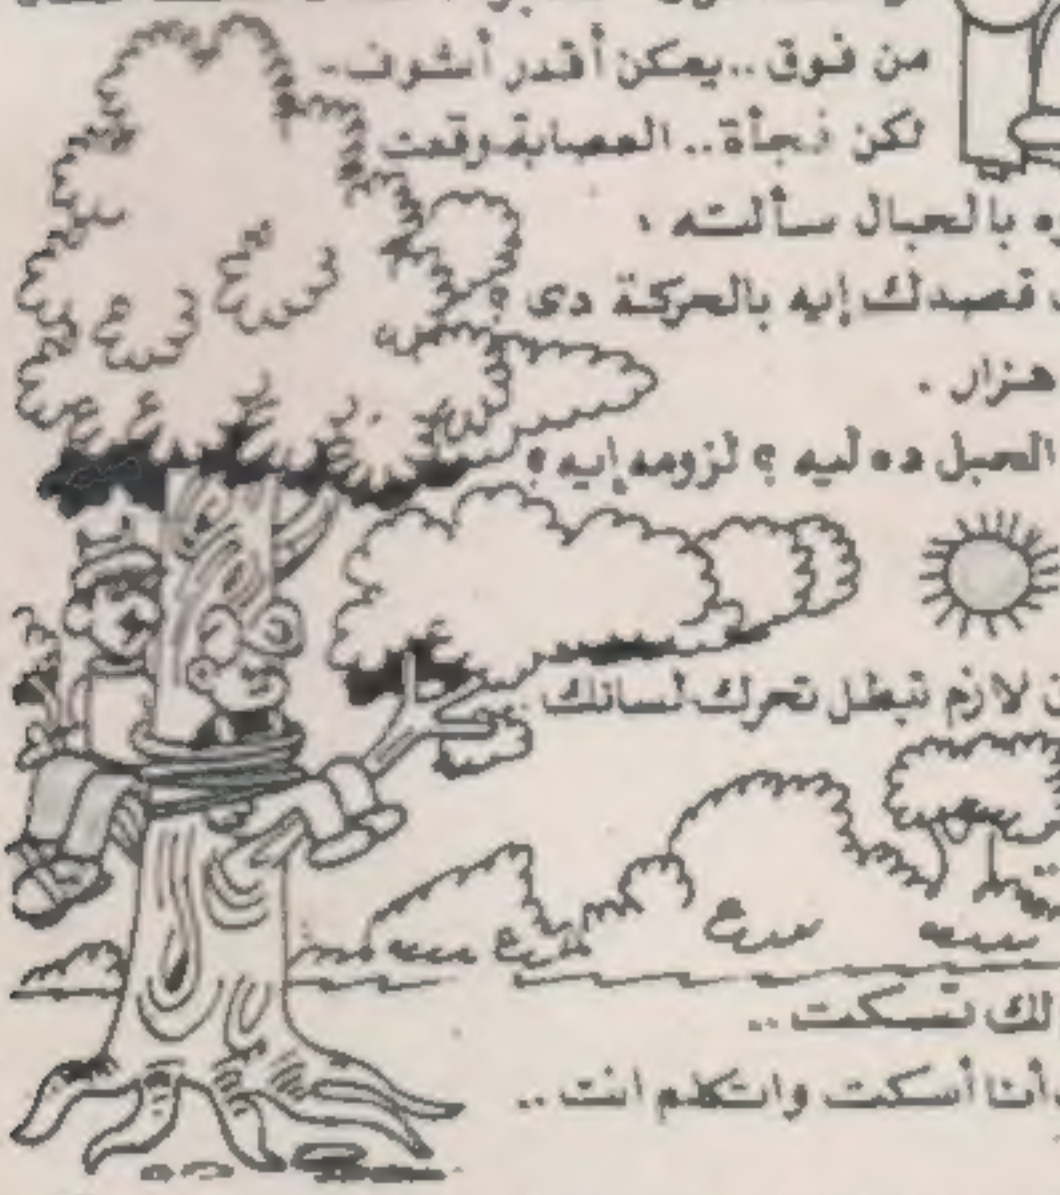 من فوق .. يمكن أقدر أشوف -
لكن فجأة .. العصابة وقعت
بالحبال سألته ،
قصدك إيه بالحركة دى ؟
هزار .
الحبل ده ليه ؟ لزومه إيه ؟
لازم تبطل تحرك لسانك ..
لك تسكت ..
أنا أسكت واتكلم انت ..